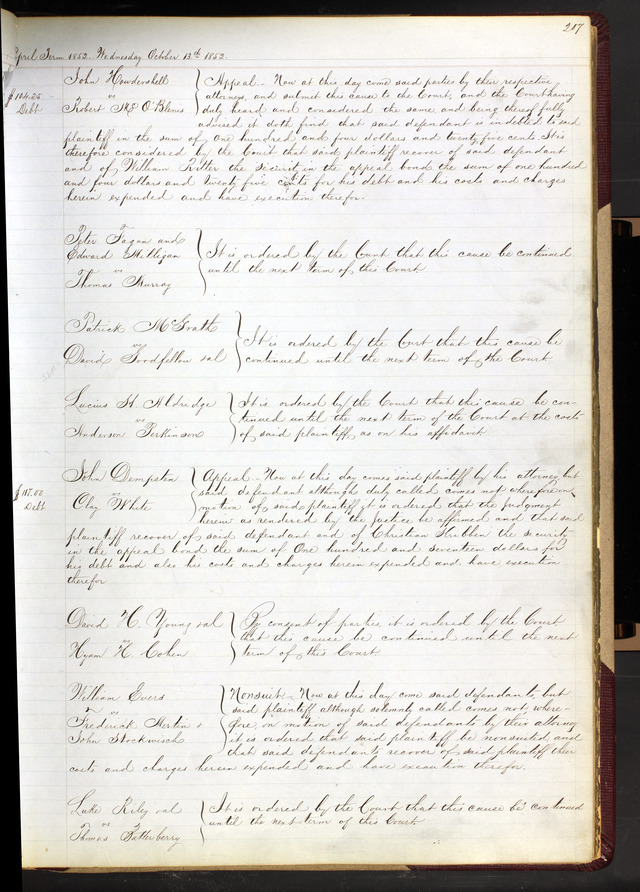 217
April Term 1852. Wednesday October 13th 1852.
John Howdershell
vs
Robert McO'Blenis
$104.25
Debt
Appeal. Now at this day come said parties by their respective
attorneys, and submit this cause to the Court, and the Court having
duly heard and considered the same and being thereof fully
advised it doth find that said defendant is indebted to said
plaintiff in the sum of one hundred and four dollars and twenty five cents It is
therefore considered by the Court that said plaintiff recover of said defendant
and of William Ritter the security in the appeal bond the sum of one hundred
and four dollars and twenty five cents for his debt and his costs and charges
herein expended and have execution therefor.
Peter Fagan and
Edward Milligan
vs
Thomas Murray
It is ordered by the Court that this cause be continued
until the next term of this Court
Patrick McGrath
vs
David Goodfellow et al
It is ordered by the Court that this cause be
continued until the next term of the Court
Lucius H. Aldridge
vs
Anderson Perkinson
It is ordered by the Court that this cause be con-
tinued until the next term of the Court at the costs
of said plaintiff, as on his affidavit
John Dempsten
vs
Clay White
$117.00
Debt
Appeal. Now at this day comes said plaintiff by his attorney but
said defendant although duly called comes not wherefore on
motion of said plaintiff it is ordered that the judgment
herein as rendered by the Justice be affirmed and that said
plaintiff recover of said defendant and of Christian Strubben the security
in the appeal bond the sum of One hundred and seventeen dollars for
his debt and also his costs and charges herein expended and have execution
therefor
David H. Young et al
vs
Hyam H. Cohen
By consent of parties it is ordered by the Court
that this cause be continued until the next
term of this Court
William Evers
vs
Frederick Mertin &
John Stockwisch
Nonsuit. Now at this day come said defendants, but
said plaintiff although solemnly called comes not, where-
fore on motion of said defendants by their attorney
it is ordered that said plaintiff be nonsuited, and
that said defendants recover of said plaintiff their
costs and charges herein expended and have execution therefor.
Luke Riley et al
vs
Thomas Batterberry
It is ordered by the Court that this cause be continued
until the next term of this Court